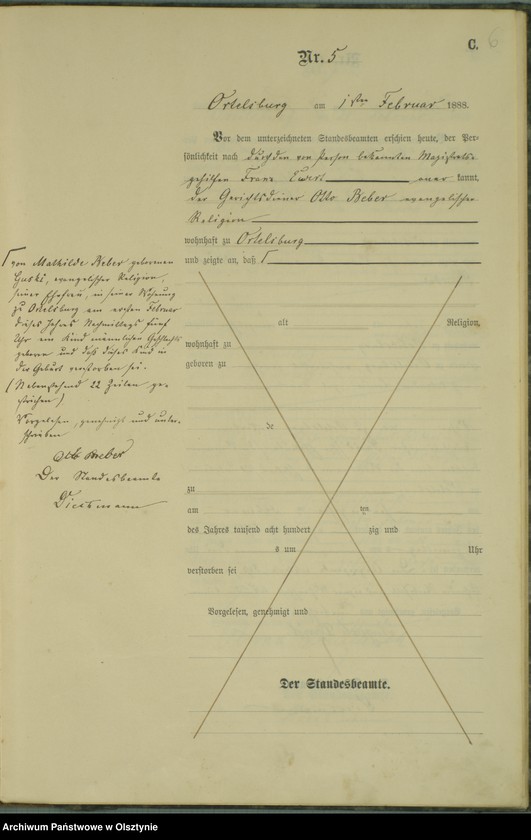 C. 6
Nr. 5
Ortelsburg am 1ten Februar 1888.
Vor dem unterzeichneten Standesbeamten erschien heute, der Per-
sönlichkeit nach durch den von Person bekannten Magistrats-
gehilfen Franz kannt,
der Gerichtsdiener Otto Beber evangelischer
Religion
wohnhaft zu Ortelsburg
und zeigte an, daß Γ
Γ von Mathilde Beber geborenen
evangelischer Religion,
seiner Ehefrau, in seiner Wohnung
zu Ortelsburg am ersten Februar
dieses Jahres Nachmittags fünf
Uhr ein Kind männlichen Geschlechts
geboren und daß dieses Kind in
der Geburt verstorben sei.
(Nebenstehend 22 Zeilen ge-
strichen)
Vorgelesen, genehmigt und unter-
schrieben
Otto Beber
Der Standesbeamte
alt Religion,
wohnhaft zu
geboren zu
de
zu
am ten
des Jahres tausend acht hundert zig und
s um Uhr
verstorben sei
Vorgelesen, genehmigt und
Der Standesbeamte.
Archiwum Państwowe w Olsztynie